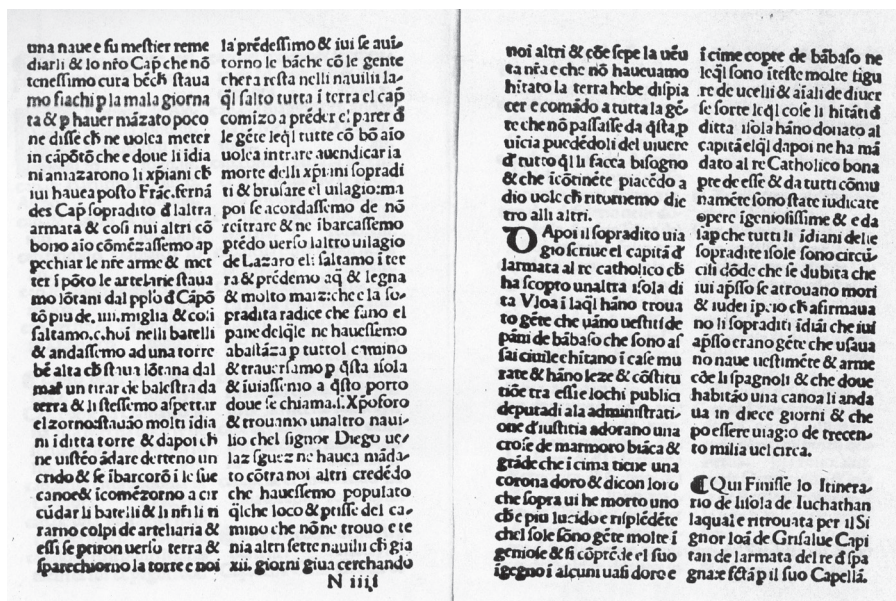 una naue e fu mestier reme
diarli & lo nr̃o Cap̃ che nõ
tenessimo cura bẽch̃ staua
mo fiachi p̱ la mala giorna
ta & p̱ hauer mãzato poco
ne disse ch̃ ne uolea meter
in cãpõtõ che e doue li idia
ni amazarono li xp̃iani ch̃
iui hauea posto Frãc. fernã
des Cap̃ sopradito đ laltra
armata & cosi nui altri cõ
bono aĩo cõmẽzassemo ap
pechiar le nr̃e arme & met
ter ĩ põto le artelarie staua
mo lõtani dal pp̃lo đ Cãpõ
tõ piu de .iiii. miglia & cosi
saltamo .c. hoĩ nelli batelli
& andassemo ad una torre
bẽ alta ch̃ staua lõtana dal
mar un tirar de balestra da
terra & li stessemo aspettar
el zorno: stauão molti idia
ni ĩ ditta torre & dapoi ch̃
ne uistẽo ãdare detteno un
crido & se ĩbarcorõ ĩ le sue
canoe & icomẽzorno a cir
cũdar li batelli & li nr̃i li ti
rarno colpi de arteliaria &
essi se p̱tiron uerso terra &
sparechiorno la torre e noi
la prẽdessimo & iui se aui⸗
torno le bãche cõ le gente
che ra resta nelli nauilii la⸗
q̃l salto tutta ĩ terra el cap̃
comizo a prẽder el parer đ
le gẽte leq̃l tutte cõ bõ aĩo
uolea intrare a uendicar ia
morte delli xp̃iani sopradi
ti & brusare el uilagio: ma
poi se acordassemo de nõ
reĩtrare & ne ĩbarcassemo
prẽdo uerso laltro uilagio
de Lazaro eli saltamo ĩ ter
ra & prẽdemo aq̃ & legna
& molto maiz: che e la so⸗
pradita radice che fano el
pane delq̃le ne hauessemo
abastãza p̱ tutto l camino
& trauersamo p̱ q̃sta isola
& iuiassemo a q̃sto porto
doue se chiama .s. Xp̃oforo
& trouamo unaltro naui⸗
lio chel signor Diego ue⸗
laz sguez ne hauea mãda⸗
to cõtra noi altri credẽdo
che hauessemo populato
q̃lche loco & p̱tisse del ca⸗
mino che nõ ne trouo e te
nia altri sette nauilii ch̃ gia
xii. giorni giua cerchando
N iiii
noi altri & cõe sepe la uẽu
ta nr̃a e che nõ haueuamo
hitato la terra hebe dispia
cer e comãdo a tutta la gẽ⸗
te che nõ passasse da q̃sta p̱
uicia puedẽdoli del uiuere
đ tutto q̃l li facea bisogno
& che icõtinẽte piacẽdo a
dio uole ch̃ ritornemo die
tro alli altri.
DApoi il sopradito uia
gio scriue el capitã đ
larmata al re catholico ch̃
ha scopto unaltra isola di
ta Vloa ĩ laq̃l hãno troua
to gẽte che uãno uestiti de
pãni de bãbaso che sono as
sai ciuile e hitano ĩ case mu
rate & hãno leze & cõstitu
tiõe tra essi e lochi publici
deputadi ala administrati⸗
one diustitia adorano una
crose de marmoro biãca &
grãde che ĩ cima tiene una
corona doro & dicon loro
che sopra ui he morto uno
ch̃ e piu lucido e rispĩẽdẽte
chel sole sõno gẽte molte ĩ
geniose & si cõprẽde el suo
ĩgegno ĩ alcuni uasi doro e
ĩ cime copte de bãbaso ne
leq̃l sono ĩteste molte figu
re de ucelli & aĩali de diuer
se sorte leq̃l cose li hitãti đ
ditta isola hãno donato al
capitã elq̃l dapoi ne ha mã
dato al re Catholico bona
p̱te de esse & da tutti cõmu
namẽte sono state iudicate
opere igeniosissime & e da
sap̱ che tutti li idiani delle
sopradite isole sono circũ⸗
cisi dõde che se dubita che
iui ap̱sso se atrouano mori
& iudei ip̱cio ch̃ afirmaua
no li sopraditi idiãi che iui
ap̱sso erano gẽte che usaua
no naue uestimẽte & arme
cõe li spagnoli & che doue
habitão una canoa li anda
ua in diece giorni & che
po essere uiagio de trecen⸗
to milia uel circa.
¶ Qui Finisse lo Itinera⸗
rio de lisola de Iuchathan
laqual e ritrouata per il Si
gnor Ioã de Grisalue Capi
tan de larmata del re đ spa
gna: e fcãa p̱ il suo Capellã.